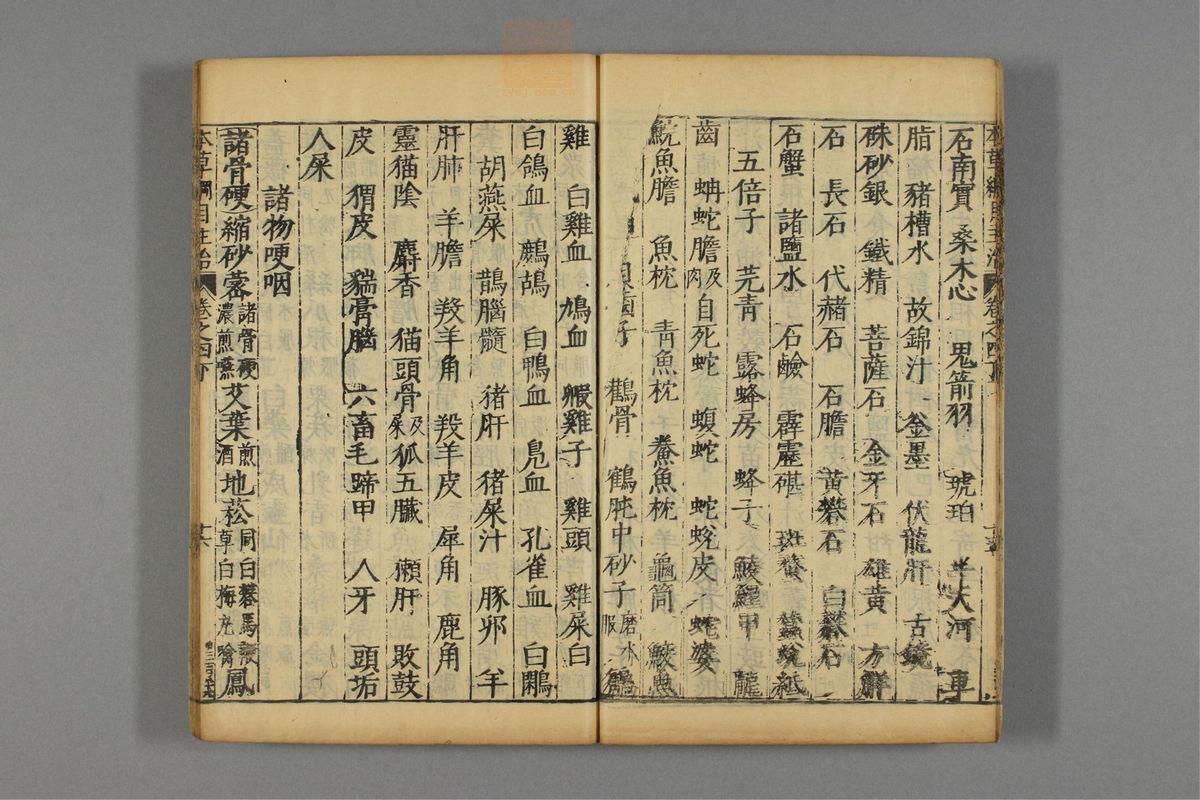 石南實 桑木心 鬼箭羽 琥珀 半天河 車
脂 豬槽水 故錦汁 金墨 伏龍肝 古鏡
硃砂銀 鐵精 菩薩石 金牙石 雄黃 方解
石 長石 代赭石 石膽 黃礬石 白礬石
石蟹 諸鹽水 石鹼 霹靂碪 斑蝥 蠶蛻紙
五倍子 芫青 露蜂房 蜂子 鯪鯉甲 龍
齒 蚺蛇膽及肉 自死蛇 蝮蛇 蛇蛻皮 蛇婆
鯇魚膽 魚枕 青魚枕 鱟魚枕 龜筒 鮫魚
貝子 鸛骨 鶴肫中砂子磨水服
雞 白雞血 鳩血 毈雞子 雞頭 雞屎白
白鴿血 鷓鴣 白鴨血 鳧血 孔雀血 白鷴
胡燕屎 鵲腦髓 豬肝 豬屎汁 豚卵 羊
肝肺 羊膽 羖羊角 羖羊皮 犀角 鹿角
靈猫陰 麝香 猫頭骨及屎 狐五臟 獺肝 敗鼓
皮 猬皮 猯膏腦 六畜毛蹄甲 人牙 頭垢
人屎
諸物哽咽
諸骨硬 縮砂蔤諸骨硬濃煎嚥 艾葉煎酒 地菘同白礬馬鞭草白梅丸噙 鳳
本草綱目主治 卷之四下 十六